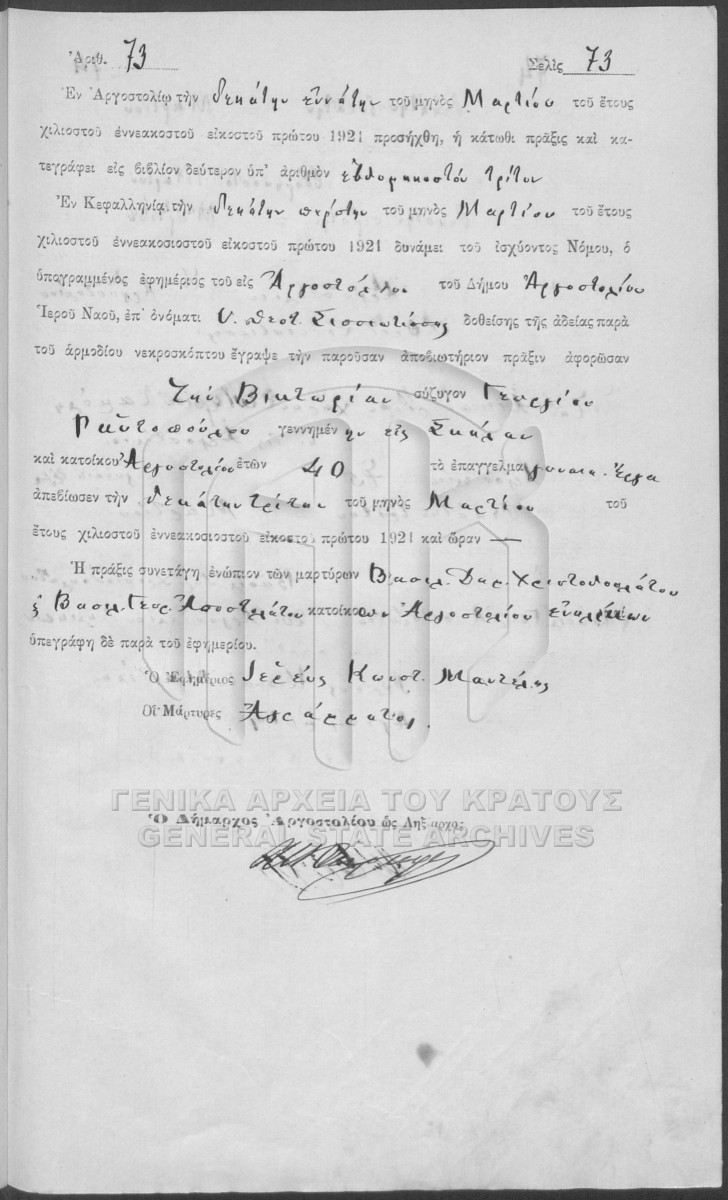 Ἀριθ. 73 Σελὶς 73
Ἐν Ἀργοστολίῳ τὴν δεκάτην ἐννάτην τοῦ μηνὸς Μαρτίου τοῦ ἔτους
χιλιοστοῦ ἐννεακοστοῦ εἰκοστοῦ πρώτου 1921 προσήχθη, ἡ κάτωθι πρᾶξις καὶ κα-
τεγράφει εἰς βιβλίον δεύτερον ὑπ' ἀριθμὸν ἑβδομηκοστόν τρίτον
Ἐν Κεφαλληνίᾳ τὴν δεκάτην πέμπτην τοῦ μηνὸς Μαρτίου τοῦ ἔτους
χιλιοστοῦ ἐννεακοσιοστοῦ εἰκοστοῦ πρώτου 1921 δυνάμει τοῦ ἰσχύοντος Νόμου, ὁ
ὑπογραμμένος ἐφημέριος τοῦ εἰς Ἀργοστόλιον τοῦ Δήμου Ἀργοστολίου
Ἱεροῦ Ναοῦ, ἐπ' ὀνόματι Υ. Θεοτ. Σισσιωτίσσης δοθείσης τῆς ἀδείας παρὰ
τοῦ ἁρμοδίου νεκροσκόπτου ἔγραψε τὴν παροῦσαν ἀποβιωτήριον πρᾶξιν ἀφορῶσαν
Τὴν Βικτωρίαν σύζυγον Γεωργίου
Ραυτοπούλου γεννημένην εἰς Σκάλαν
καὶ κατοίκου Ἀργοστολίου ἐτῶν 40 τὸ ἐπαγγελμα γυναικ. Ἔργα
ἀπεβίωσεν τὴν δεκάτην τρίτην τοῦ μηνὸς Μαρτίου τοῦ
ἔτους χιλιοστοῦ ἐννεακοσιοστοῦ εἰκοστοῦ πρώτου 1921 καὶ ὥραν —
Ἡ πρᾶξις συνετάγη ἐνώπιον τῶν μαρτύρων Βασιλ. Δημ. Χριστοδουλάτου
ς Βασιλ. Γεωρ. Ἀποστολάτου κατοίκων Ἀργοστολίου
ὑπεγράφη δὲ παρὰ τοῦ ἐφημερίου.
Ὁ Ἐφημέριος Ἱερεύς Κωνστ. Μαντέλης
Οἱ Μάρτυρες Ἀγράμματοι
ΓΕΝΙΚΑ ΑΡΧΕΙΑ ΤΟΥ ΚΡΑΤΟΥΣ
Ὁ Δήμαρχος Ἀργοστολίου ὡς Ληξίαρχος
GENERAL STATE ARCHIVES